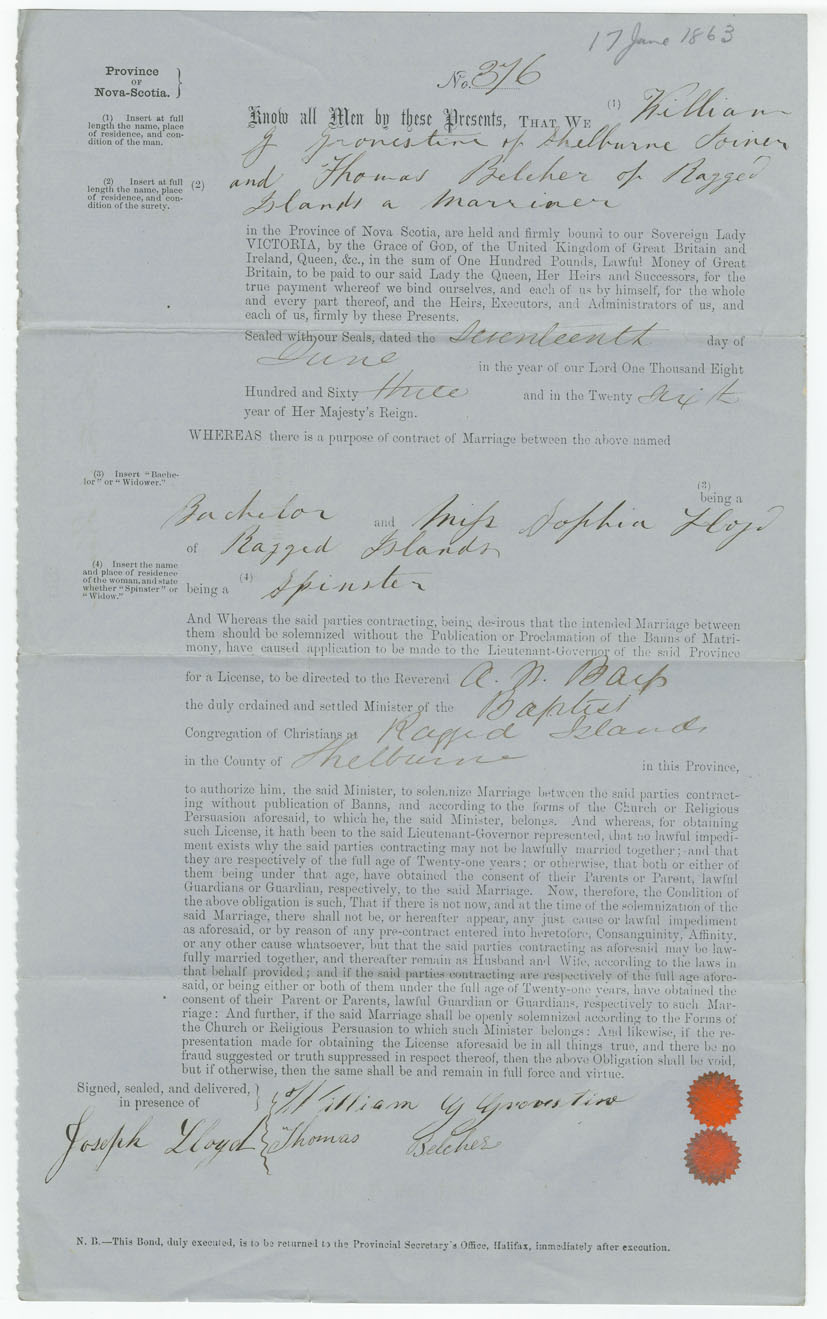 17 June 1863
Province
OF
Nova-Scotia.
No. 376
(1) Insert at full
length the name, place
of residence, and con-
dition of the man.
Know all Men by these Presents, THAT WE (1) William
G Grovestine of Shelburne Joiner
(2) Insert at full
length the name, place
of residence, and con-
dition of the surety.
(2) and Thomas Belcher of Ragged
Islands a Marriner
in the Province of Nova Scotia, are held and firmly bound to our Sovereign Lady
VICTORIA, by the Grace of GOD, of the United Kingdom of Great Britain and
Ireland, Queen, &c., in the sum of One Hundred Pounds, Lawful Money of Great
Britain, to be paid to our said Lady the Queen, Her Heirs and Successors, for the
true payment whereof we bind ourselves, and each of us by himself, for the whole
and every part thereof, and the Heirs, Executors, and Administrators of us, and
each of us, firmly by these Presents.
Sealed with our Seals, dated the Seventeenth day of
June in the year of our Lord One Thousand Eight
Hundred and Sixty three and in the Twenty sixth
year of Her Majesty's Reign.
WHEREAS there is a purpose of contract of Marriage between the above named
(3) Insert "Bache-
lor" or "Widower."
(3)
being a
Bachelor and Miss Sophia Lloyd
of Ragged Islands
(4) Insert the name
and place of residence
of the woman, and state
whether "Spinster" or
"Widow."
being a (4) Spinster
And Whereas the said parties contracting, being desirous that the intended Marriage between
them should be solemnized without the Publication or Proclamation of the Banns of Matri-
mony, have caused application to be made to the Lieutenant-Governor of the said Province
for a License, to be directed to the Reverend A. W. Barss
the duly ordained and settled Minister of the Baptist
Congregation of Christians at Ragged Islands
in the County of Shelburne in this Province,
to authorize him, the said Minister, to solemnize Marriage between the said parties contract-
ing without publication of Banns, and according to the forms of the Church or Religious
Persuasion aforesaid, to which he, the said Minister, belongs. And whereas, for obtaining
such License, it hath been to the said Lieutenant-Governor represented, that no lawful impedi-
ment exists why the said parties contracting may not be lawfully married together; and that
they are respectively of the full age of Twenty-one years; or otherwise, that both or either of
them being under that age, have obtained the consent of their Parents or Parent, lawful
Guardians or Guardian, respectively, to the said Marriage. Now, therefore, the Condition of
the above obligation is such, That if there is not now, and at the time of the solemnization of the
said Marriage, there shall not be, or hereafter appear, any just cause or lawful impediment
as aforesaid, or by reason of any pre-contract entered into heretofore, Consanguinity, Affinity,
or any other cause whatsoever, but that the said parties contracting as aforesaid may be law-
fully married together, and thereafter remain as Husband and Wife, according to the laws in
that behalf provided; and if the said parties contracting are respectively of the full age afore-
said, or being either or both of them under the full age of Twenty-one years, have obtained the
consent of their Parent or Parents, lawful Guardian or Guardians, respectively to such Mar-
riage: And further, if the said Marriage shall be openly solemnized according to the Forms of
the Church or Religious Persuasion to which such Minister belongs: And likewise, if the re-
presentation made for obtaining the License aforesaid be in all things true, and there be no
fraud suggested or truth suppressed in respect thereof, then the above Obligation shall be void,
but if otherwise, then the same shall be and remain in full force and virtue.
Signed, sealed, and delivered,
in presence of
William G Grovestine
Joseph Lloyd Thomas Belcher
N. B.—This Bond, duly executed, is to be returned to the Provincial Secretary's Office, Halifax, immediately after execution.